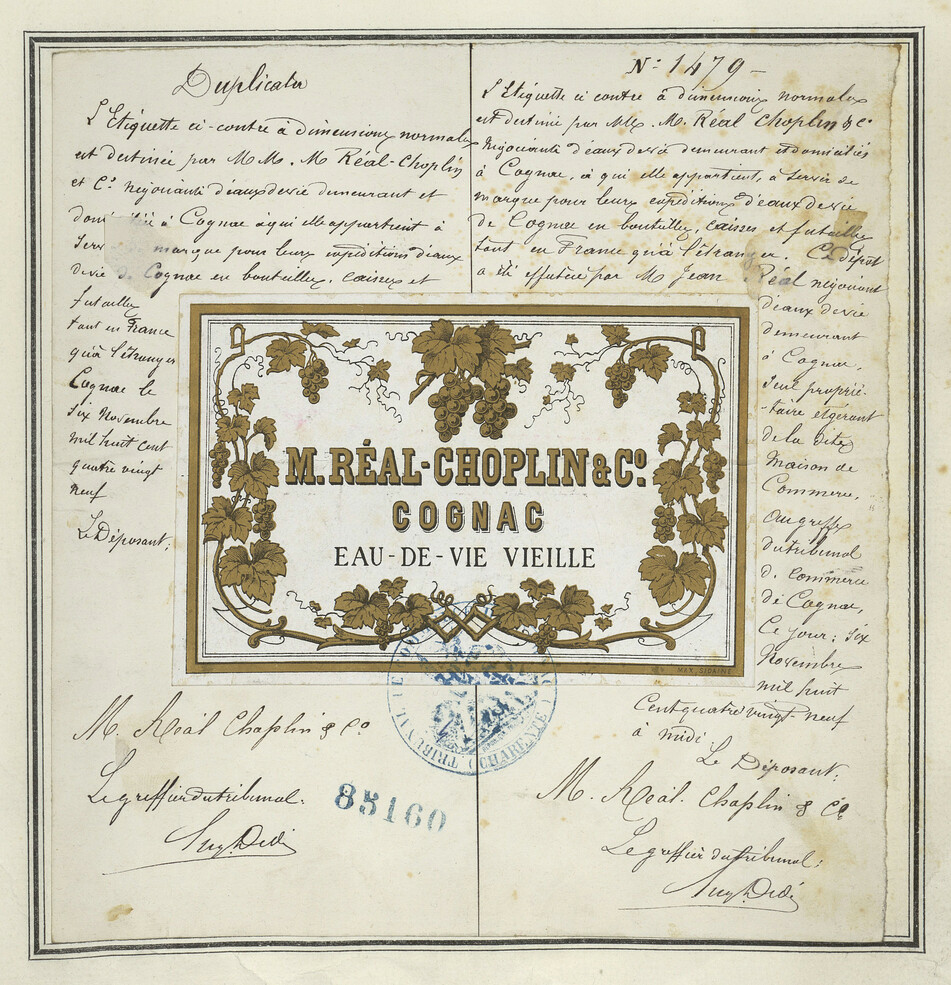 Duplicata
L'Etiquette ci-contre à dimensions normales
est destinée par MM. M Réal-Choplin
et Cº. négociants d'eaux de vie demeurant et
à Cognac à qui elle appartient à
marque pour leurs expéditions d'eaux
de vie de Cognac en bouteilles, caisses et
futailles
tant en France
qu'à l'étranger
Cognac le
six Novembre
mil huit cent
quatre vingt
neuf
Le Déposant,
M. Réal Choplin & Cº
Le greffier du tribunal.
85160
Nº 1479
L'Etiquette ci contre à dimensions normales
est destinée par MM. M. Réal Choplin & Cº
Négociants d'eaux de vie demeurant et domiciliés
à Cognac, à qui elle appartient, à servir de
marque pour leurs expéditions d'eaux de vie
de Cognac en bouteilles, caisses et futailles
tant en France qu'à l'étranger. Ce dépôt
a été effectué par M Jean Réal négociant
d'eaux de vie
demeurant
à Cognac,
seul proprié-
-taire et gérant
de la dite
Maison de
Commerce,
au greffe
du tribunal
de Commerce
de Cognac,
Ce jour: six
Novembre
mil huit
Cent quatre vingt-neuf
à midi
Le Déposant,
M. Réal. Choplin & Cº
Le greffier du tribunal;
M. RÉAL-CHOPLIN & Cº.
COGNAC
EAU-DE-VIE VIEILLE
TRIBUNAL DE COMMERCE
(CHARENTE)